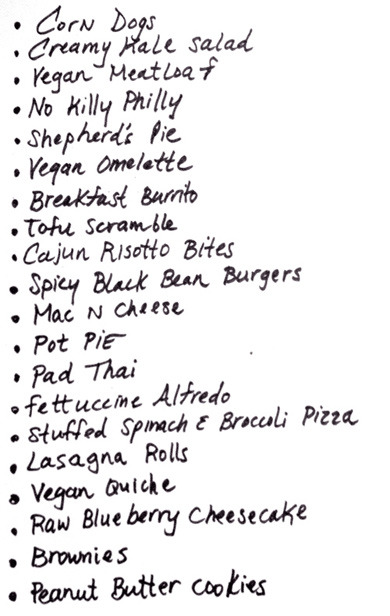 • Corn Dogs
• Creamy Kale Salad
• Vegan Meatloaf
• No Killy Philly
• Shepherd's Pie
• Vegan Omelette
• Breakfast Burrito
• Tofu Scramble
• Cajun Risotto Bites
• Spicy Black Bean Burgers
• Mac N Cheese
• Pot PiE
• Pad Thai
• Fettuccine Alfredo
• Stuffed Spinach & Broccoli Pizza
• Lasagna Rolls
• Vegan Quiche
• Raw Blueberry Cheesecake
• Brownies
• Peanut Butter Cookies